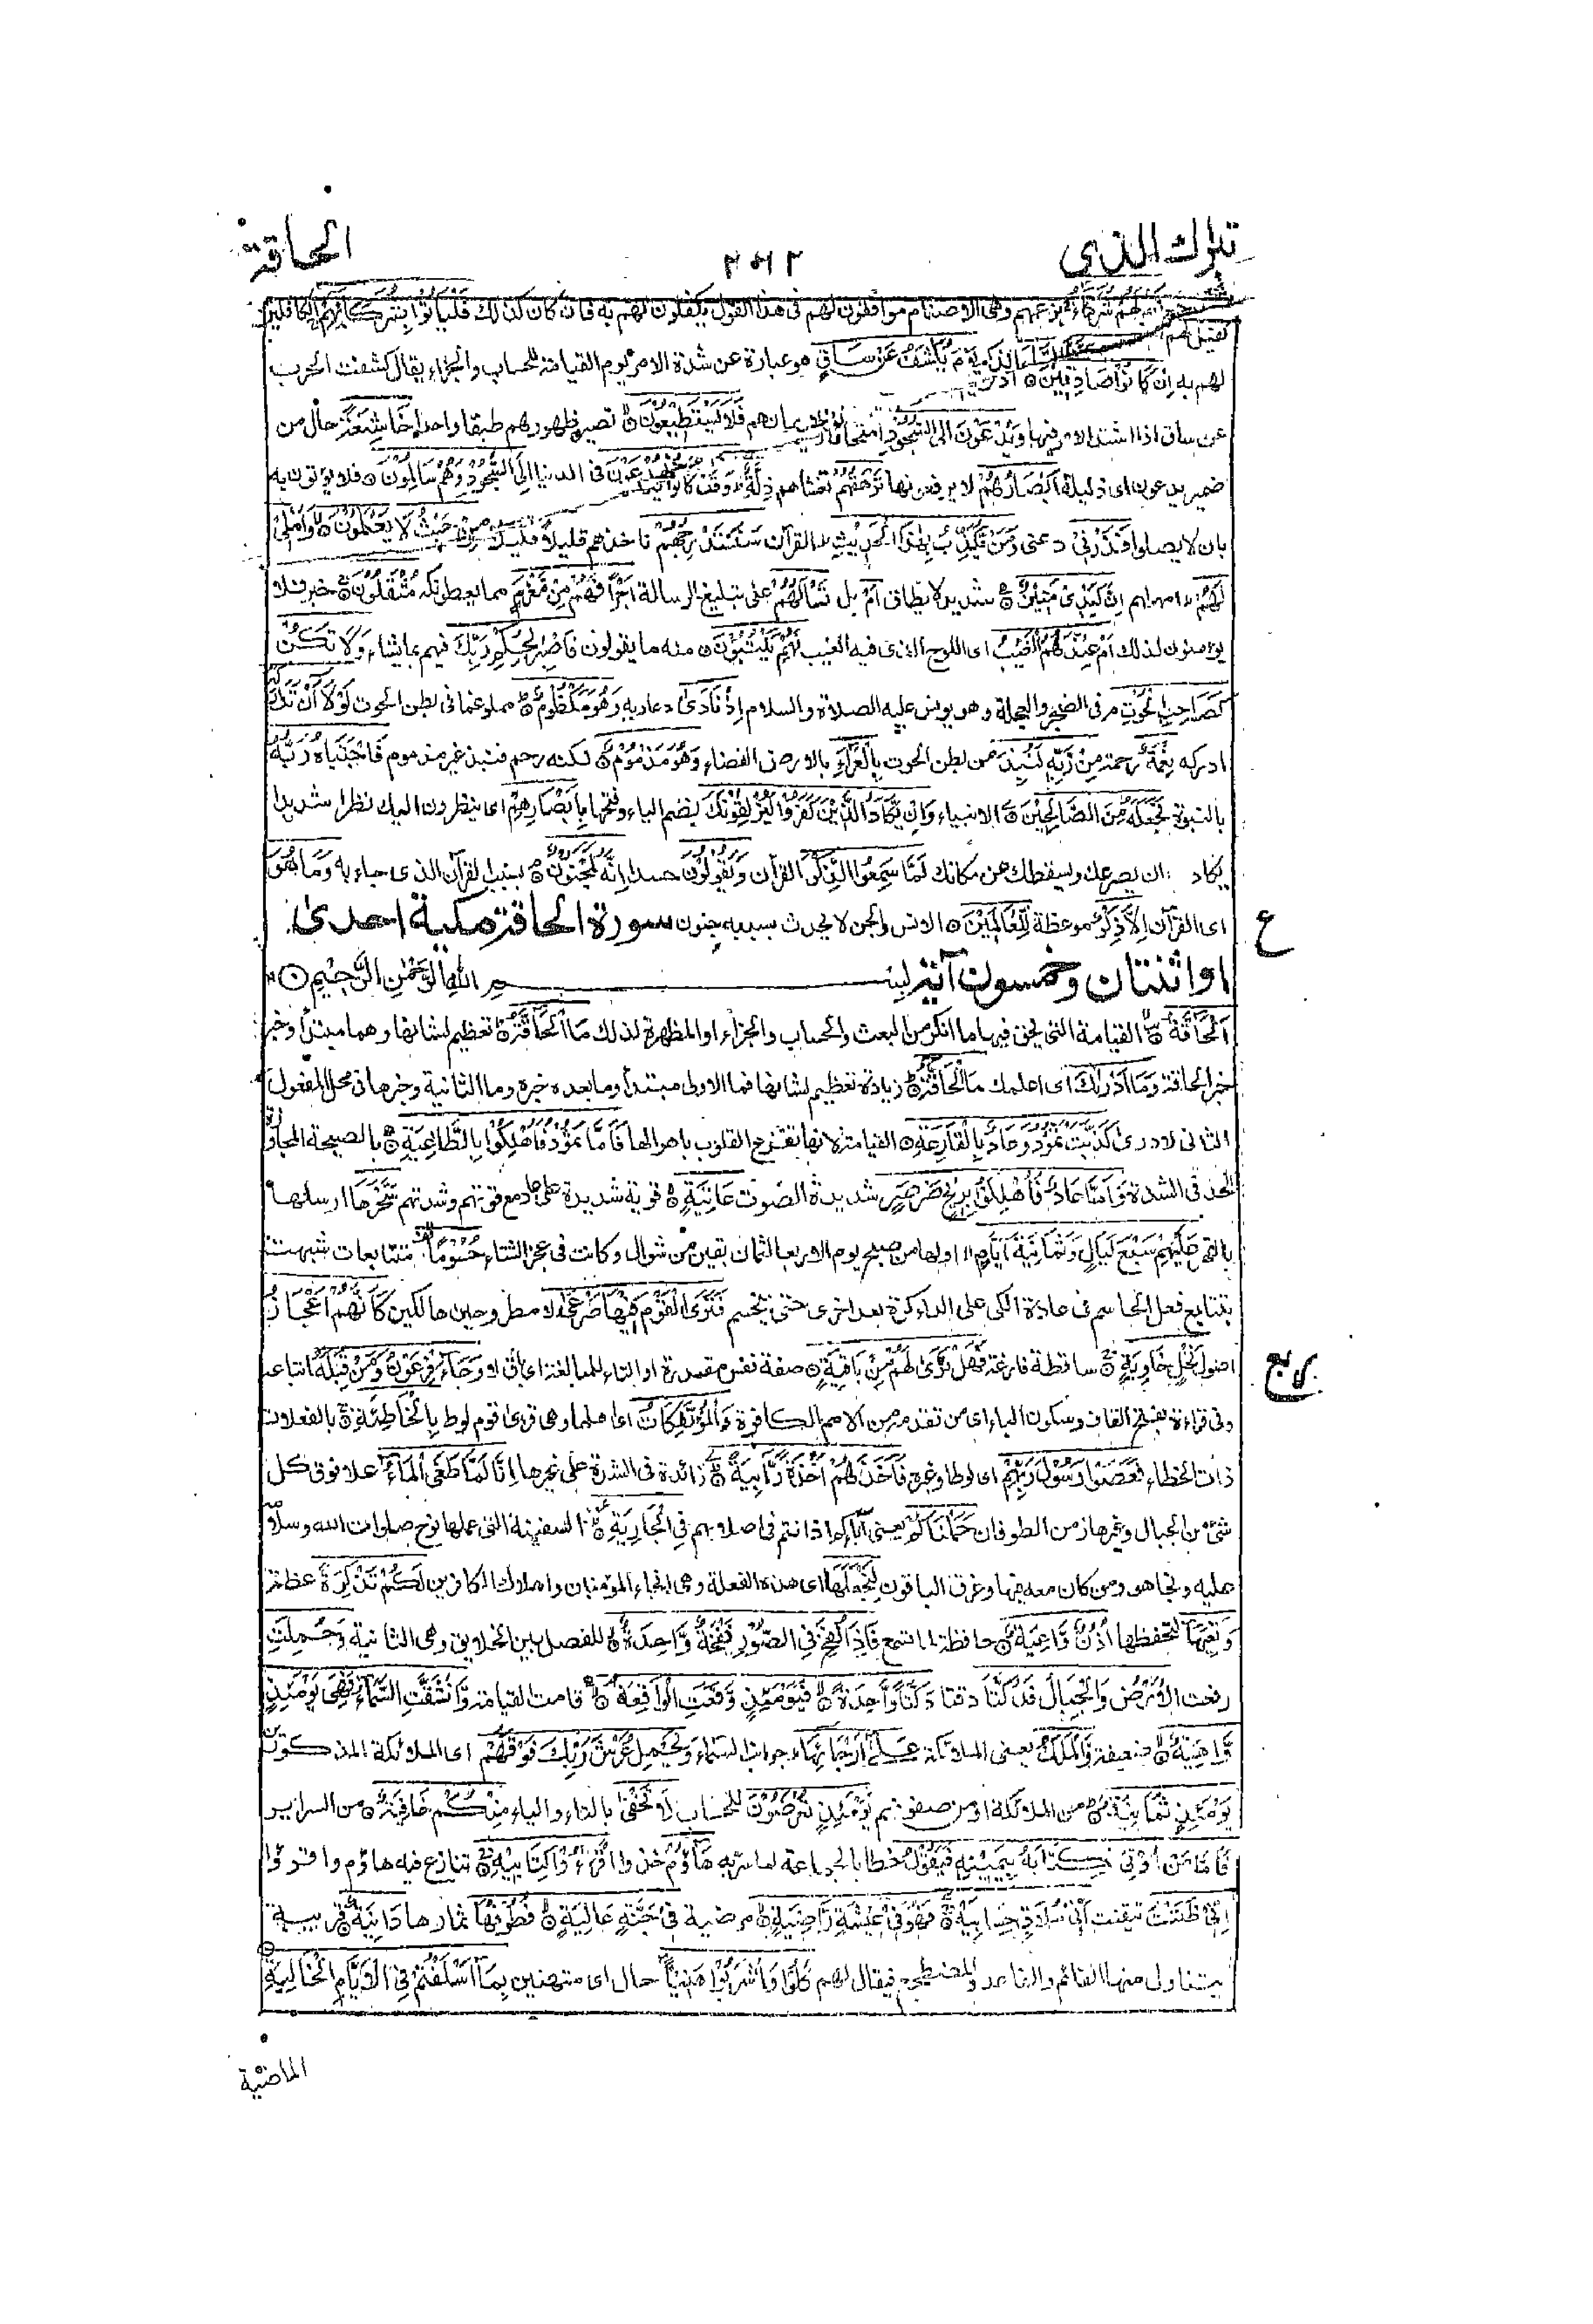 تبارك الذي
٢٥١٢
الحاقة
لهم شركاء بزعمهم وهى الاصنام موافقون لهم فى هذا القول يكفلون لهم به فان كان كذلك فَلْيَأْتُوا بِشُرَكَائِهِمْ الكافلين
لهم به إِنْ كَانُوا صَادِقِيْنَ اذكر يَوْمَ يُكْشَفُ عَنْ سَاقٍ هو عبارة عن شدة الامر يوم القيامة للحساب والجزاء يقال كشفت الحرب
عن ساق اذا اشتد الامر فيها وَيُدْعَوْنَ الى السُّجُوْدِ امتحانا لايمانهم فَلَا يَسْتَطِيْعُوْنَ تصير ظهورهم طبقا واحدا خَاشِعَةً حال من
ضمير يدعون اى ذليلة اَبْصَارُهُمْ لا يرفعونها تَرْهَقُهُمْ تغشاهم ذِلَّةٌ وَقَدْ كَانُوا يُدْعَوْنَ فى الدنيا اِلَى السُّجُوْدِ وَهُمْ سَالِمُوْنَ فلا يؤتون به
بان لا يصلوا فَذَرْنِيْ دعنى وَمَنْ يُّكَذِّبُ بِهٰذَا الْحَدِيْثِ القرآن سَنَسْتَدْرِجُهُمْ ناخذهم قليلا قليلا مِنْ حَيْثُ لَا يَعْلَمُوْنَ وَاُمْلِيْ
لَهُمْ امهلهم اِنَّ كَيْدِيْ مَتِيْنٌ شديد لا يطاق اَمْ بل تَسْاَلُهُمْ على تبليغ الرسالة اَجْرًا فَهُمْ مِنْ مَّغْرَمٍ مما يعطونكه مُثْقَلُوْنَ خبر فلا
يؤمنون لذلك اَمْ عِنْدَهُمُ الْغَيْبُ اى اللوح الذى فيه الغيب فَهُمْ يَكْتُبُوْنَ منه ما يقولون فَاصْبِرْ لِحُكْمِ رَبِّكَ فيهم بما يشاء وَلَا تَكُنْ
كَصَاحِبِ الْحُوْتِ فى الضجر والعجلة وهو يونس عليه الصلاة والسلام اِذْ نَادٰى دعا ربه وَهُوَ مَكْظُوْمٌ مملو غما فى بطن الحوت لَوْلَا اَنْ تَدٰرَكَهُ
ادركه نِعْمَةٌ رحمة مِنْ رَّبِّهٖ لَنُبِذَ من بطن الحوت بِالْعَرَاءِ بالارض الفضاء وَهُوَ مَذْمُوْمٌ لكنه رحم فنبذ غير مذموم فَاجْتَبَاهُ رَبُّهُ
بالنبوة فَجَعَلَهُ مِنَ الصَّالِحِيْنَ الانبياء وَاِنْ يَّكَادُ الَّذِيْنَ كَفَرُوْا لَيُزْلِقُوْنَكَ بضم الياء وفتحها بِاَبْصَارِهِمْ اى ينظرون اليك نظرا شديدا
يكاد ان يصرعك ويسقطك عن مكانك لَمَّا سَمِعُوا الذِّكْرَ القرآن وَيَقُوْلُوْنَ حسدا اِنَّهٗ لَمَجْنُوْنٌ بسبب القرآن الذى جاء به وَمَا هُوَ
اى القرآن اِلَّا ذِكْرٌ موعظة لِلْعَالَمِيْنَ الانس والجن لا يحدث بسببه جنون سورة الحاقة مكية احدى
ع
او اثنتان وخمسون آية بسم الله الرحمن الرحيم
اَلْحَاقَّةُ القيامة التى يحق فيها ما انكر من البعث والحساب والجزاء او المظهرة لذلك مَا الْحَاقَّةُ تعظيم لشانها وهما مبتدأ وخبر
خبر الحاقة وَمَا اَدْرٰكَ اى اعلمك مَا الْحَاقَّةُ زيادة تعظيم لشانها فما الاولى مبتدأ وما بعده خبره وما الثانية وخبرها فى محل المفعول
الثانى لادرى كَذَّبَتْ ثَمُوْدُ وَعَادٌ بِالْقَارِعَةِ القيامة لانها تقرع القلوب باهوالها فَاَمَّا ثَمُوْدُ فَاُهْلِكُوْا بِالطَّاغِيَةِ بالصيحة المجاوزة
الحد فى الشدة وَاَمَّا عَادٌ فَاُهْلِكُوْا بِرِيْحٍ صَرْصَرٍ شديدة الصوت عَاتِيَةٍ قوية شديدة على عاد مع قوتهم وشدتهم سَخَّرَهَا ارسلها
بالقهر عَلَيْهِمْ سَبْعَ لَيَالٍ وَّثَمَانِيَةَ اَيَّامٍ اولها من صبح يوم الاربعا لثمان بقين من شوال وكانت فى عجز الشتاء حُسُوْمًا متتابعات شبهت
بتتابع فعل الحاسم فى عادة الكى على الداء كرة بعد اخرى حتى ينحسم فَتَرَى الْقَوْمَ فِيْهَا صَرْعٰى مطروحين هالكين كَاَنَّهُمْ اَعْجَازُ
اصول نَخْلٍ خَاوِيَةٍ ساقطة فارغة فَهَلْ تَرٰى لَهُمْ مِّنْ بَاقِيَةٍ صفة نفس مقدرة او التاء للمبالغة اى باق لا وَجَاءَ فِرْعَوْنُ وَمَنْ قِبَلَهُ اتباعه
ربع
وفى قراءة بفتح القاف وسكون الباء اى من تقدمه من الامم الكافرة وَالْمُؤْتَفِكَاتُ اى اهلها وهى قرى قوم لوط بِالْخَاطِئَةِ بالفعلات
ذات الخطاء فَعَصَوْا رَسُوْلَ رَبِّهِمْ اى لوطا وغيره فَاَخَذَهُمْ اَخْذَةً رَّابِيَةً زائدة فى الشدة على غيرها اِنَّا لَمَّا طَغَى الْمَاءُ علا فوق كل
شئ من الجبال وغيرها زمن الطوفان حَمَلْنَاكُمْ يعنى آباءكم اذ انتم فى اصلابهم فِى الْجَارِيَةِ السفينة التى عملها نوح صلوات الله وسلامه
عليه ونجا هو ومن كان معه فيها وغرق الباقون لِنَجْعَلَهَا اى هذه الفعلة وهى انجاء المؤمنين واهلاك الكافرين لَكُمْ تَذْكِرَةً عظة
وَتَعِيَهَا لتحفظها اُذُنٌ وَّاعِيَةٌ حافظة لما تسمع فَاِذَا نُفِخَ فِى الصُّوْرِ نَفْخَةٌ وَّاحِدَةٌ للفصل بين الخلايق وهى الثانية وَحُمِلَتِ
رفعت الْاَرْضُ وَالْجِبَالُ فَدُكَّتَا دقتا دَكَّةً وَّاحِدَةً فَيَوْمَئِذٍ وَّقَعَتِ الْوَاقِعَةُ قامت القيامة وَانْشَقَّتِ السَّمَاءُ فَهِىَ يَوْمَئِذٍ
وَّاهِيَةٌ ضعيفة وَّالْمَلَكُ يعنى الملائكة عَلٰى اَرْجَائِهَا جوانب السماء وَيَحْمِلُ عَرْشَ رَبِّكَ فَوْقَهُمْ اى الملائكة المذكورين
يَوْمَئِذٍ ثَمَانِيَةٌ من الملائكة او من صفوفهم يَوْمَئِذٍ تُعْرَضُوْنَ للحساب لَا تَخْفٰى بالتاء والياء مِنْكُمْ خَافِيَةٌ من السراير
فَاَمَّا مَنْ اُوْتِىَ كِتَابَهُ بِيَمِيْنِهٖ فَيَقُوْلُ خطابا لجماعة لما سر به هَاؤُمُ خذوا اقْرَءُوْا كِتَابِيَهْ تنازع فيه هاؤم واقرؤا
اِنِّىْ ظَنَنْتُ تيقنت اَنِّىْ مُلَاقٍ حِسَابِيَهْ فَهُوَ فِىْ عِيْشَةٍ رَّاضِيَةٍ مرضية فِىْ جَنَّةٍ عَالِيَةٍ قُطُوْفُهَا ثمارها دَانِيَةٌ قريبة
يتناول منها القائم والقاعد والمضطجع فيقال لهم كُلُوْا وَاشْرَبُوْا هَنِيْئًا حال اى متهنئين بِمَا اَسْلَفْتُمْ فِى الْاَيَّامِ الْخَالِيَةِ
الماضية